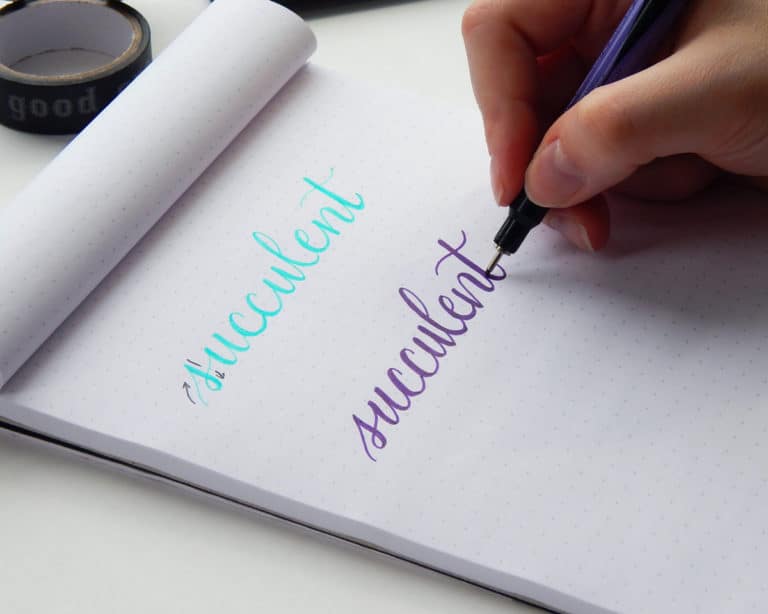 good
succulent
succulent